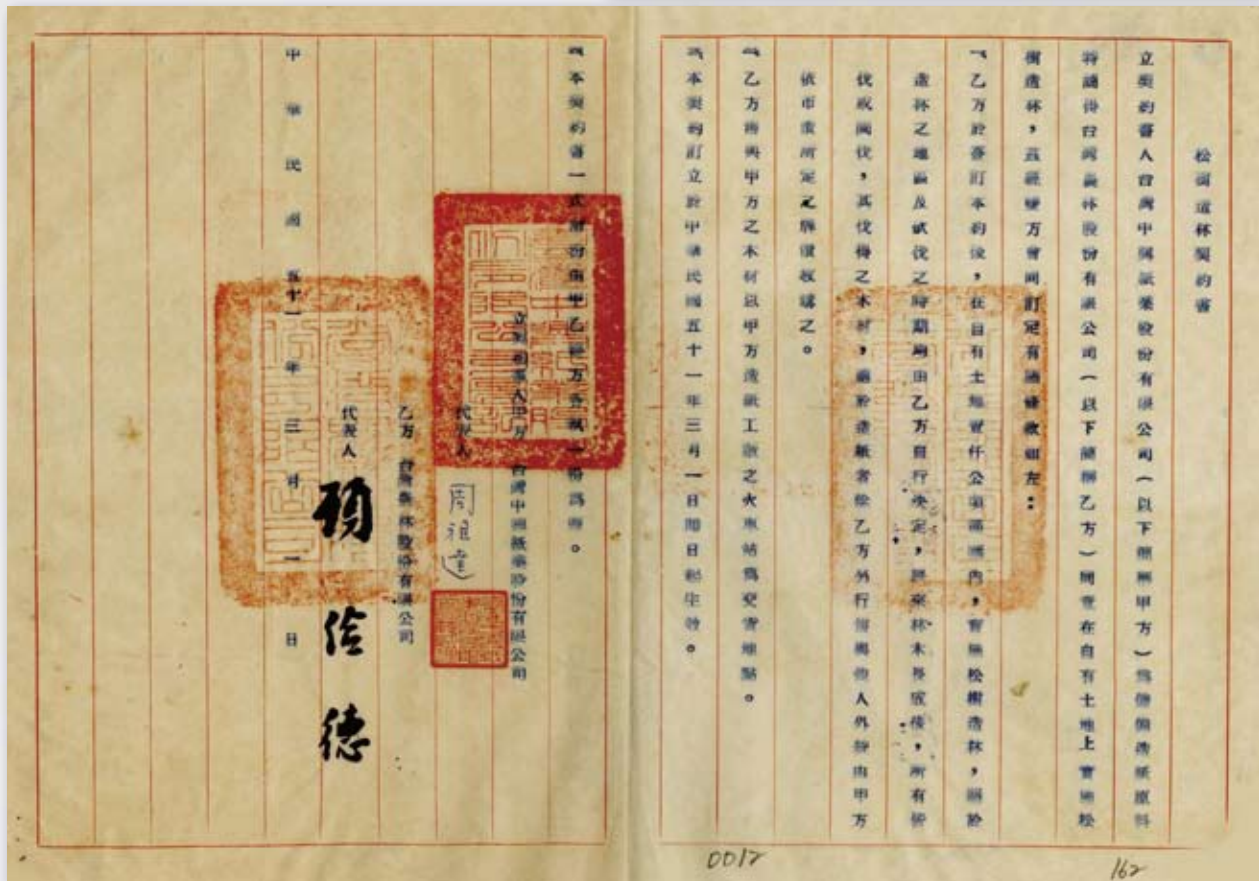 松樹造林契約書
立契約書人台灣中興紙業股份有限公司(以下簡稱甲方)為儲備造紙原料
特商得台灣農林股份有限公司(以下簡稱乙方)同意在自有土地上實施松
樹造林,茲經雙方會同訂定有關條款如左:
一、乙方於簽訂本約後,在自有土地壹仟公頃範圍內,實施松樹造林,關於
造林之地區及試伐之時期均由乙方自行決定,將來林木長成後,所有皆
伐或間伐,其伐得之木材,適於造紙者除乙方外行
依市價所定之牌價收購之。
二、乙方將與甲方之木材以甲方造紙工廠之火車站為交貨地點。
三、本契約訂立於中華民國五十一年三月一日即日起生效。
四、本契約書一式貳份由甲乙雙方各執一份為憑。
立契約書人甲方 台灣中興紙業股份有限公司
代表人 周祖達
乙方 台灣農林股份有限公司
代表人
中華民國五十一年三月一日
0012
162